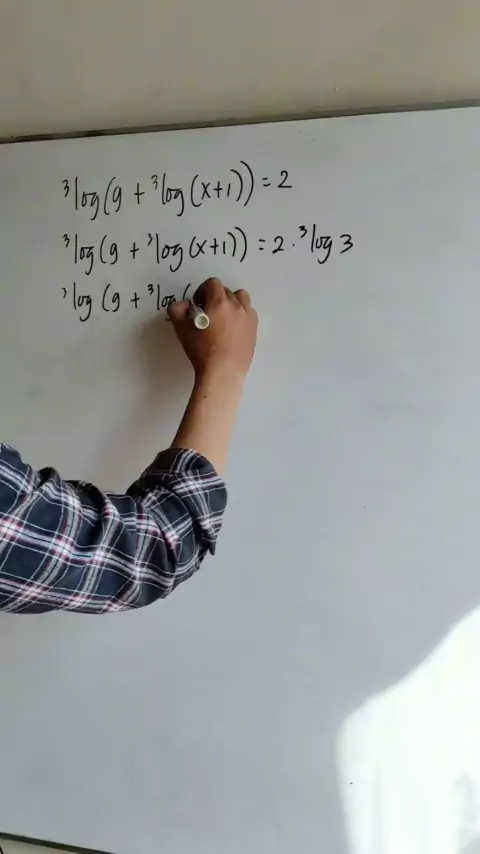 ³log(9 + ³log(x+1)) = 2
³log(9 + ³log(x+1)) = 2 · ³log 3
³log(9 + ³log(